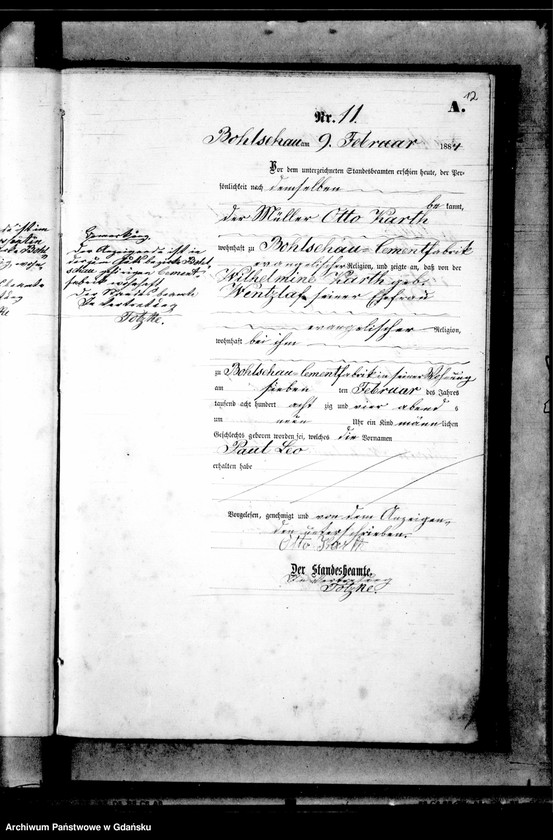 12
A.
Nr. 11
Bohlschau am 9. Februar 1884
Vor dem unterzeichneten Standesbeamten erschien heute, der Per-
sönlichkeit nach demselben
be kannt,
der Müller Otto Karth
wohnhaft zu Bohlschau-Cementfabrik
evangelischer Religion, und zeigte an, daß von der
Wilhelmine Karth geb.
Wentzlaf seiner Ehefrau
evangelischer Religion,
wohnhaft bei ihm
zu Bohlschau-Cementfabrik in seiner Wohnung
am sieben ten Februar des Jahres
tausend acht hundert acht zig und vier abends
um neun Uhr ein Kind männlichen
Geschlechts geboren worden sei, welches die Vornamen
Paul Leo
erhalten habe
Vorgelesen, genehmigt und von dem Anzeigen-
den unterschrieben
Otto Karth
Der Standesbeamte.
In Vertretung
Totzke.
Der Anzeigende ist in
fabrik wohnhaft
Der Standesbeamte
In Vertretung
Totzke.
Archiwum Państwowe w Gdańsku